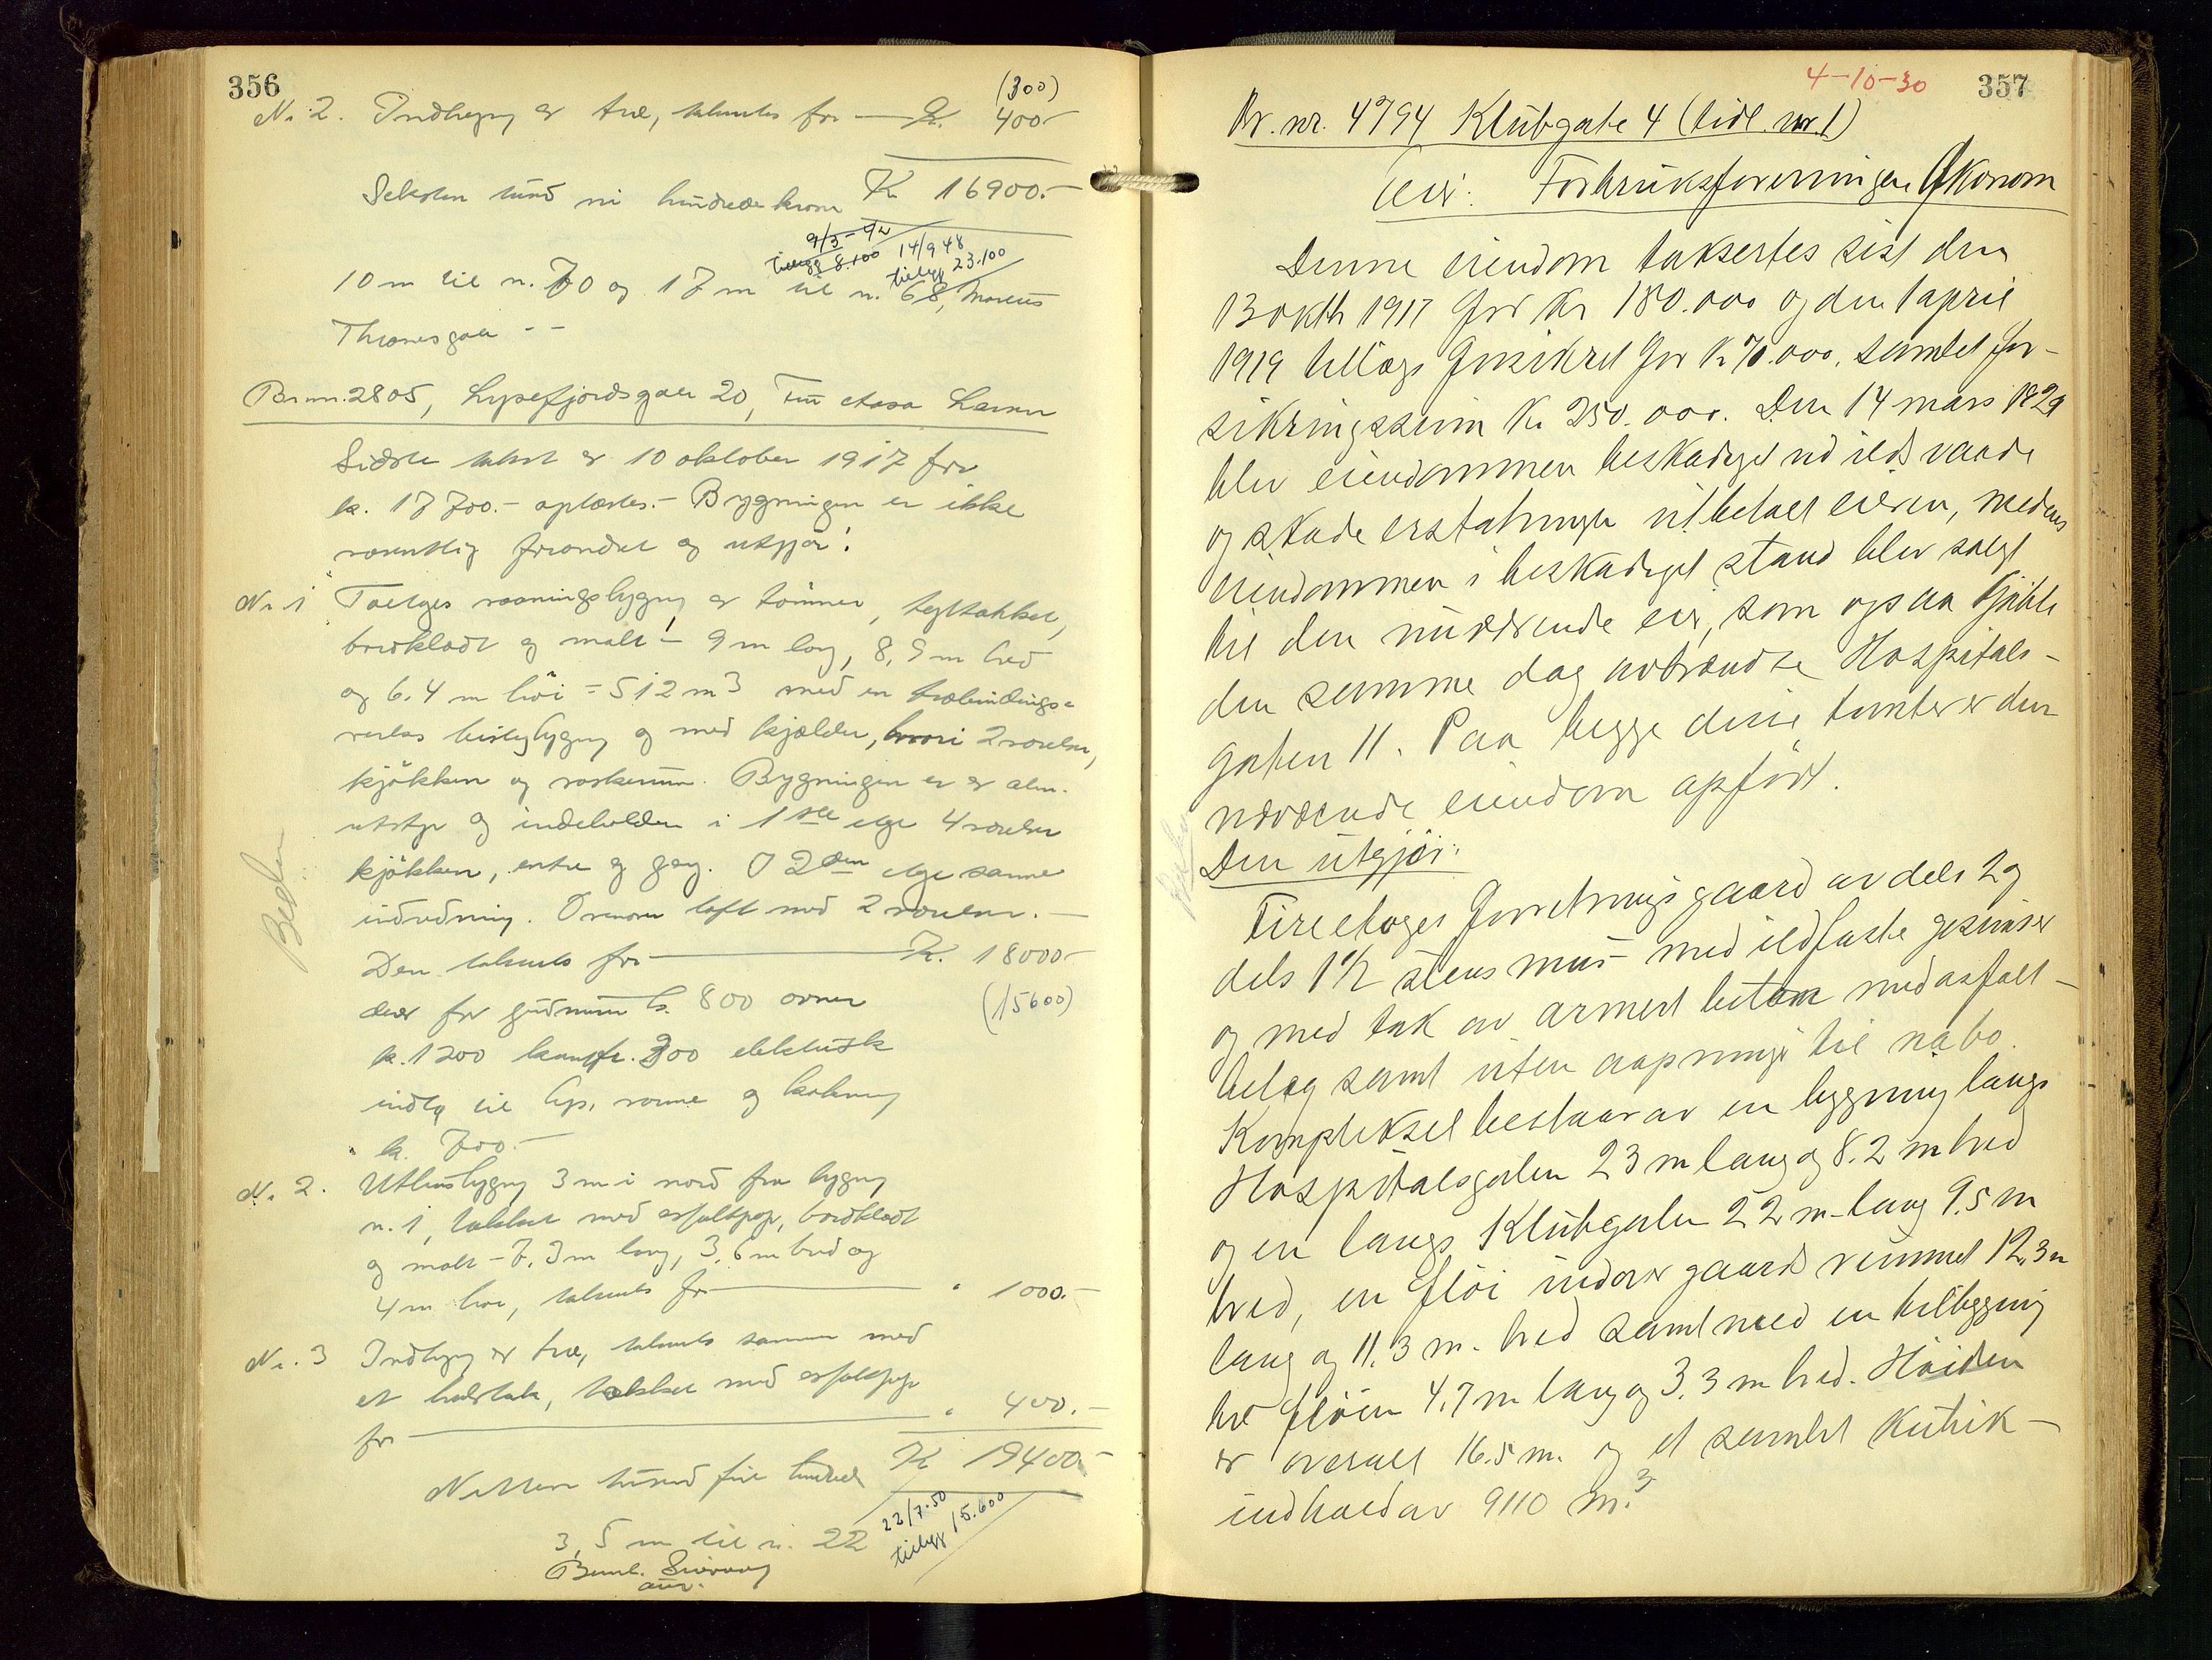 356
(300)
No. 2. Indhegn av træ, takseres for — K. 400.-
Seksten tusen ni hundrede kroner K 16900.-
9/3-42 tillegg 8.100
14/9 48 tillegg 23.100
10 m til nr. 70 og 17 m til nr. 68,
Thranesgate - -
Br.nr. 2805, Lysefjordsgate 20,
Sidste takst er 10 oktober 1917 for
k. 17700.- oplæstes.- Bygningen er ikke
væsentlig forandret og utgjør:
No. 1 Toetages vaaningsbygning av tømmer, tegltækket,
bordklædt og malt - 9 m lang, 8,9 m bred
og 6.4 m høi = 512 m3 med en træbindings-
verks bislagbygning og med kjælder, hvori 2 værelser,
kjøkken og vaskerum. Bygningen er av alm.
utstyr og indeholder i 1ste etge 4 værelser
kjøkken, entre og gang. I 2den etge samme
indredning. Ovenover loft med 2 værelser. —
Den takseres for — K. 18000.-
derav for grundmur k. 800 ovner (15600)
k. 1200 300 elektrisk
indlæg til lys, varme og kokning
k. 700.-
No. 2. Uthusbygning 3 m i nord fra bygning
n. 1, tækket med asfaltpap, bordklædt
og malt - 7.3 m lang, 3,6 m bred og
4 m høi, takseres for — " 1000.-
No. 3 Indhegn av træ, takseres sammen med
et halvtak, tækket med asfaltpap
for — " 400.-
Nitten tusend fire hundrede K 19400.-
22/7-50 tillegg 15.600
3,5 m til n. 22
4-10-30
357
Br. nr. 4794 Klubgate 4 (tidl. nr. 1)
Eier: Forbruksforeningen Økonom
Denne eiendom taksertes sist den
13 oktb 1917 for Kr 180.000 og den 1 april
1919 tillægs forsikret for Kr 70.000, samlet for-
sikringssum Kr 250.000. Den 14 mars 1929
blev eiendommen beskadiget ved ildsvaade
og skadeerstatningen utbetalt eieren, medens
eiendommen i beskadiget stand blev solgt
til den nuværende eier, som ogsaa kjøbte
den samme dag avbrændte Hospitals-
gaten 11. Paa begge disse tomter er den
nærværende eiendom opført.
Den utgjør:
Fireetages forretningsgaard av dels 2 og
dels 1 1/2 stens mur med ildfaste gesimser
og med tak av armert beton med asfalt-
belæg samt uten aapninger til nabo.
Komplekset bestaar av en bygning langs
Hospitalsgaten 23 m lang og 8.2 m bred
og en langs Klubgaten 22 m lang 9.5 m
bred, en fløi indover gaardsrummet 12.3 m
lang og 11.3 m. bred samt med en tilbygning
til fløien 4.7 m lang og 3.3 m bred. Høiden
er overalt 16.5 m. og et samlet kubik-
indhold av 9110 m.3